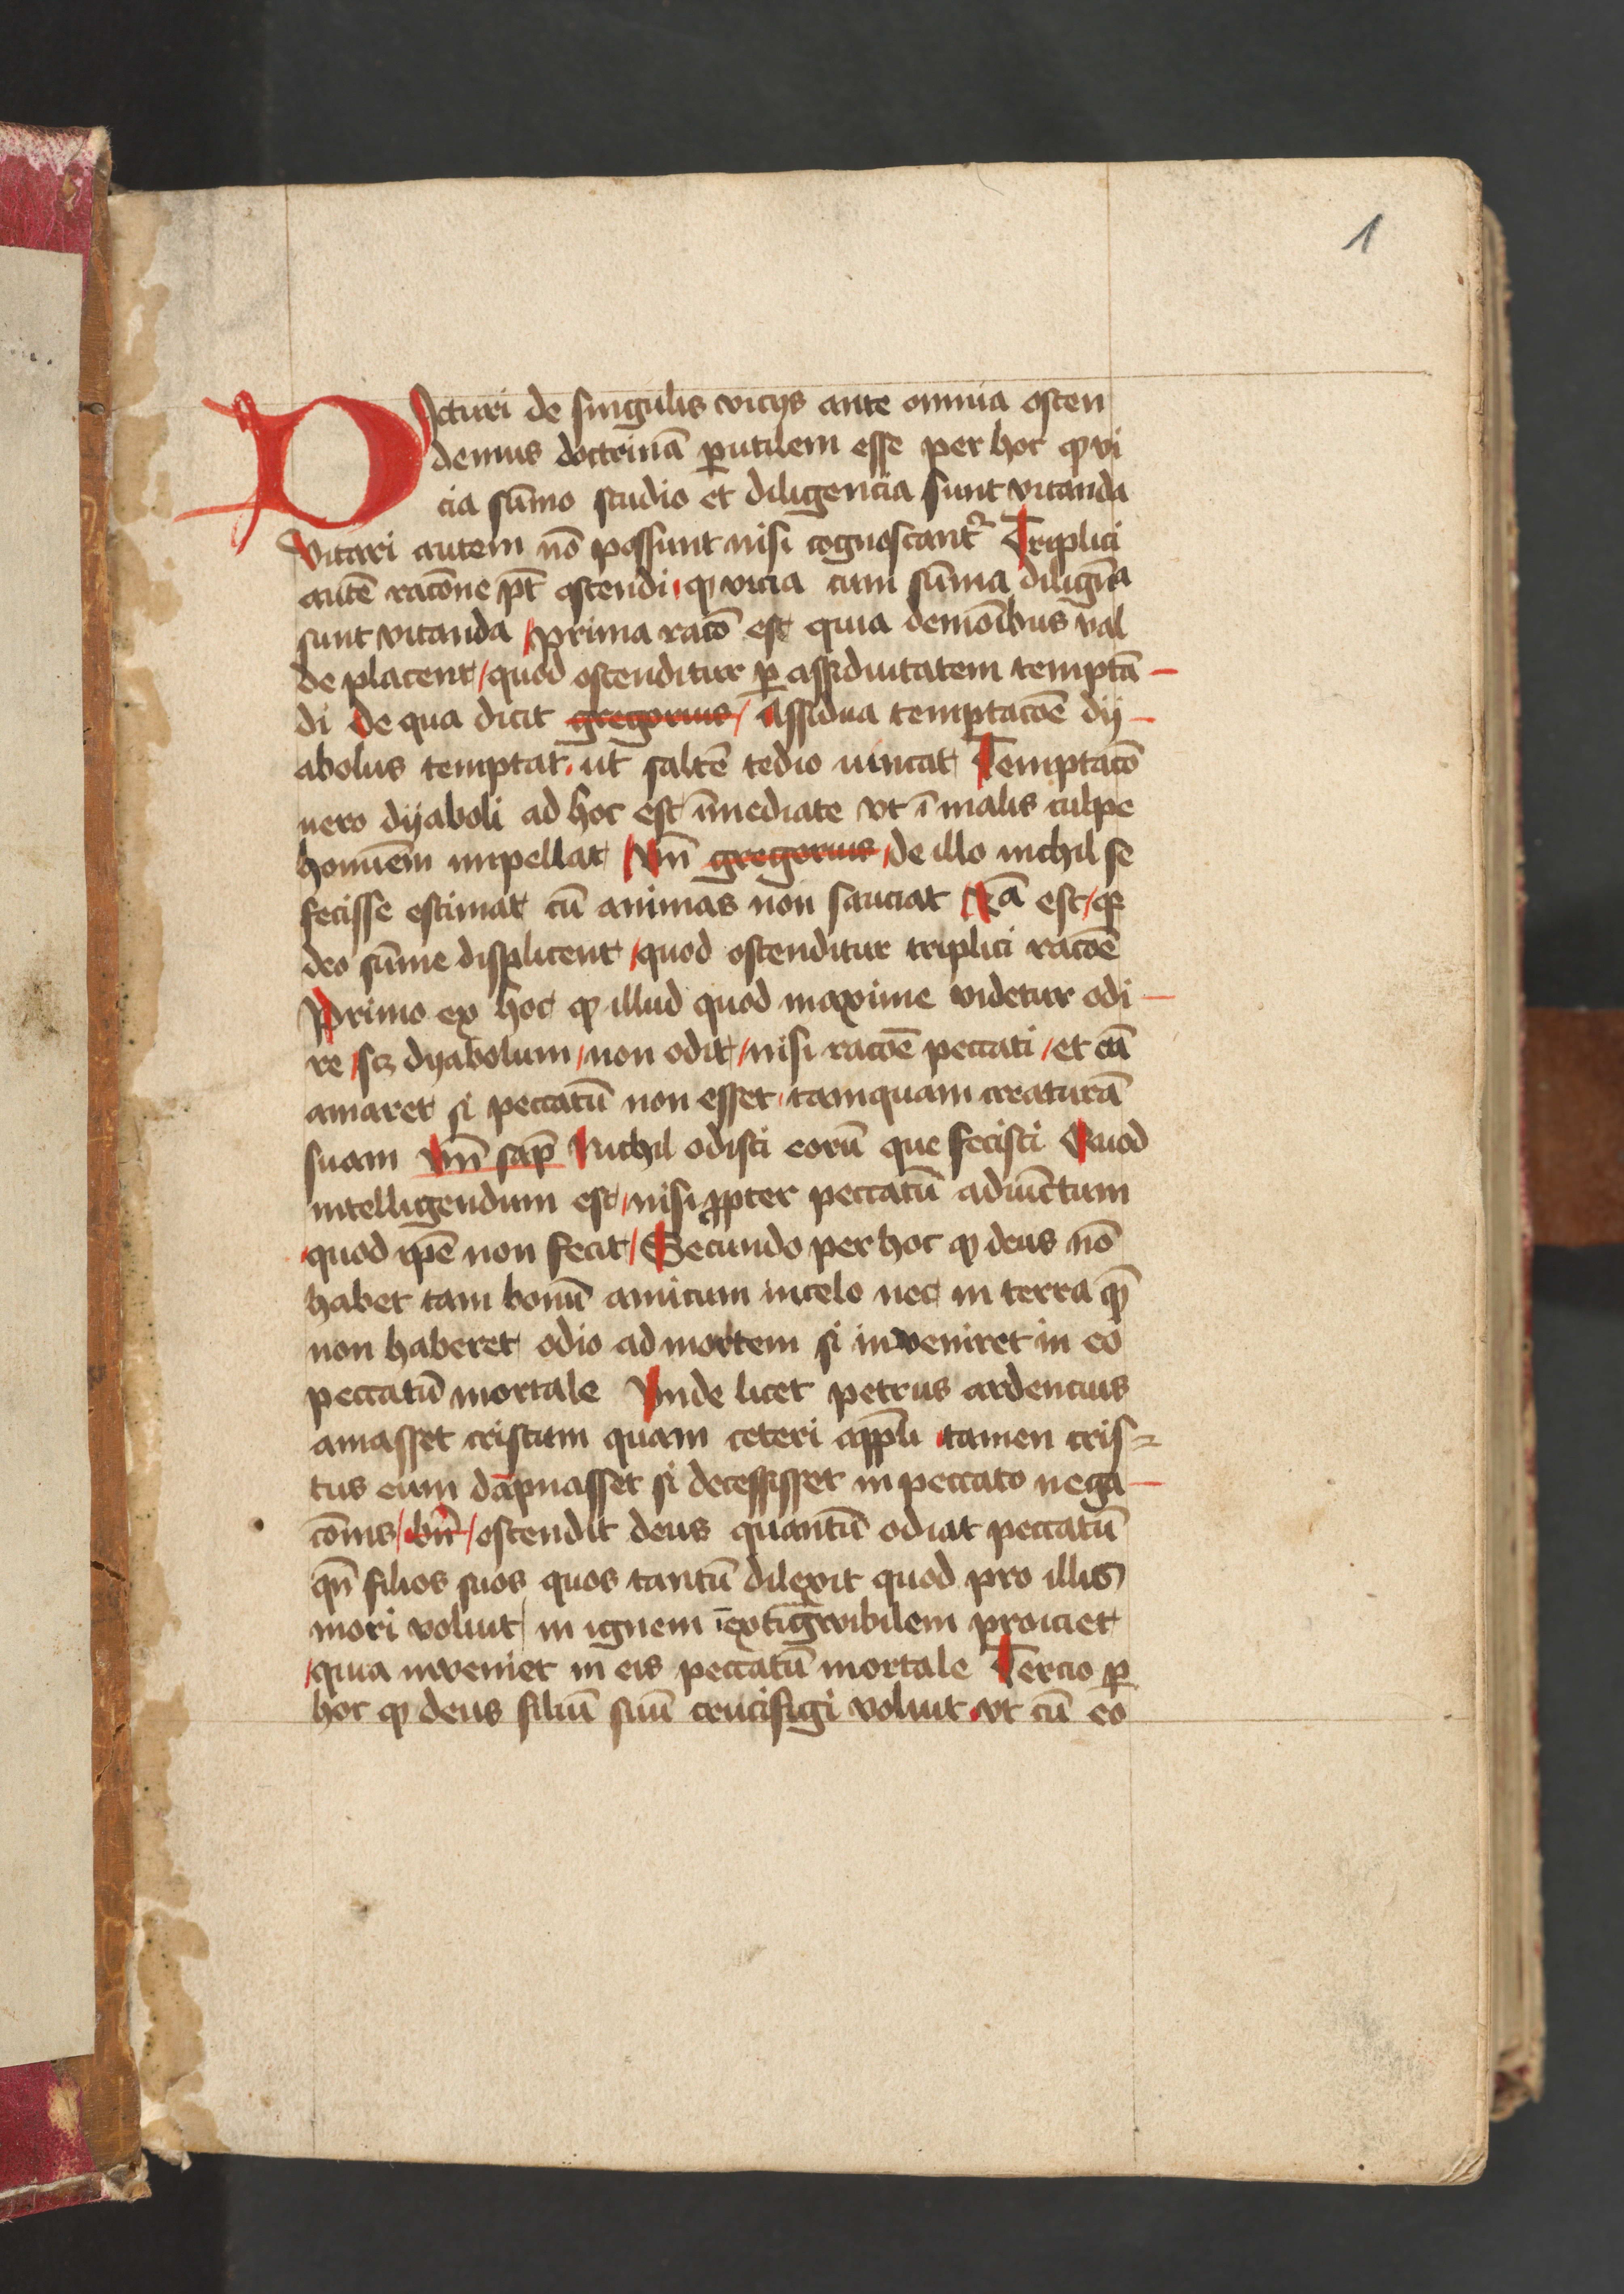 1
Dicturi de singulis vicijs ante omnia osten
demus doctrinā ꝑutilem esse per hoc ꝙ vi
cia sūmo studio et diligencia sunt vitanda
Vitari autem nō possunt nisi cognoscant᷑ Triplici
autē racōne pt̄ ostendi ꝙ vicia cum sūma diligēa
sunt vitanda / prima racō est quia demōibus val
de placent / quod ostenditur ꝑ assiduitatem temptā –
di De qua dicit gregorius / Assidua temptacōe dy –
abolus temptat ut saltē tedio uincat Temptacō
uero dyaboli ad hoc est īmediate vt ī malis culpe
homīem impellat / Vn̄ gregorius / de illo nichil se
fecisse estimat cū animas non sauciat / 2ᵃ est / ꝙ
deo sūme displicent / quod ostenditur triplici racōe
Primo ex hoc ꝙ illud quod maxime videtur odi –
re / scꝫ dyabolum / non odit / nisi racōe peccati / et eū
amaret si peccatū non esset / tamquam creaturā
suam Vn̄ sap̄ Nichil odisti eorū que fecisti Quod
intelligendum est / nisi ꝓpter peccatū adiūctum
quod ip̄e non fecit / Secundo per hoc ꝙ deus nō
habet tam bonū amicum in celo nec in terra qn̄
non haberet odio ad mortem si inveniret in eo
peccatū mortale Vnde licet petrus ardencius
amasset cristum quam ceteri app̄li tamen cris =
tus eum dāpnasset si decessisset in peccato nega –
cōnis / bn̄ / ostendit deus quantū odiat peccatū
qn̄ filios suos quos tantū dilexit quod pro illis
mori voluit in ignem īextīgwibilem proiciet
quia inveniet in eis peccatū mortale Tercio ꝑ
hoc ꝙ deus filiū suū crucifigi voluit vt cū eo